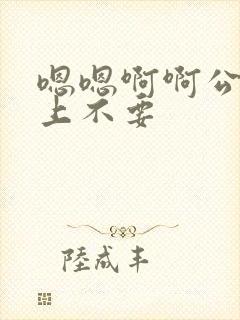 嗯嗯啊啊公
上不要
陸成丰